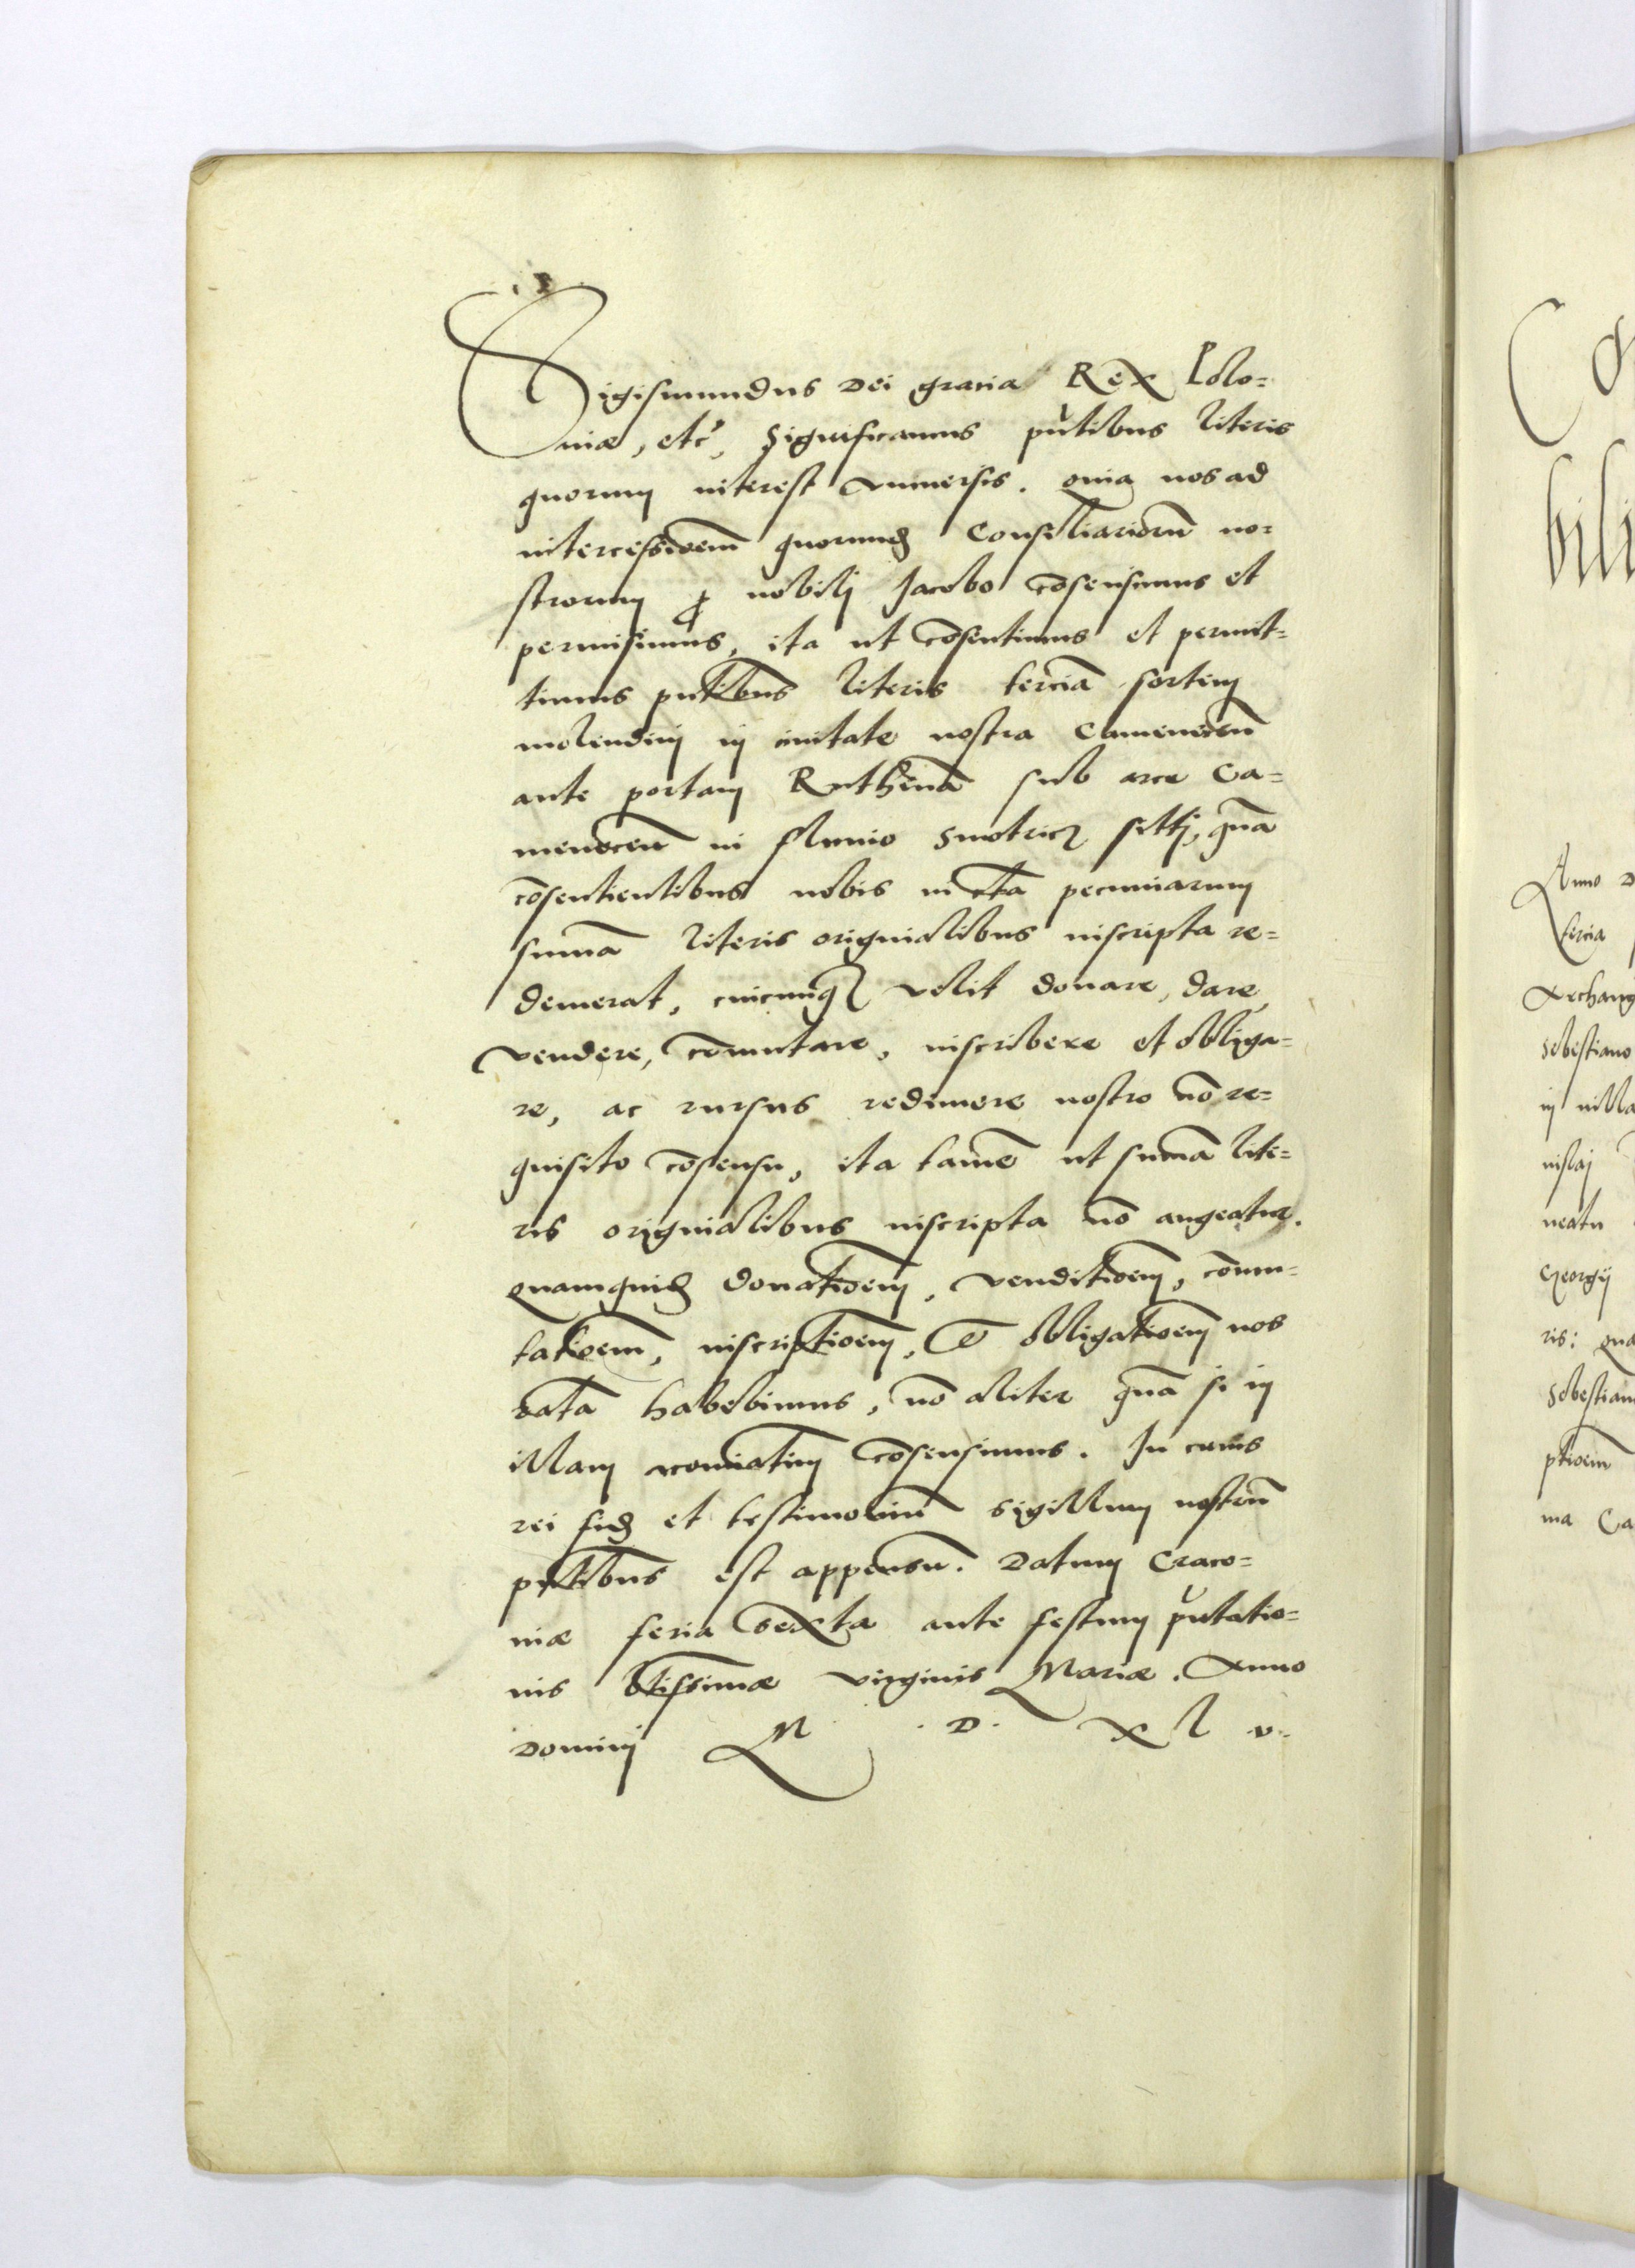 Sigismundus Dei gratia Rex Polo=
niæ, etc̃, Significamus pñtibus literis
quorum interest vniuersis. Quia nos ad
intercessioem̃ quorund̃ Consiliariorũ no=
strorum ꝓ nobilj Jacobo cõsensimus et
permisimus, ita ut cõsentimus et permit=
timus pñtibus literis terciã sortem
molendini in ciuitate nostra Camenecen̄
ante portam Ruthenã sub arce Ca=
menecen̄ in fluuio Smotricz sittj, quã
cõsentientibus nobis in cta pecuniarum
summã literis originalibus inscripta re=
demerat, cuicunqꝫ velit donare, dare,
vendere, cõmutare, inscribere et obliga=
re, ac rursus redimere nostro nõ re=
quisito cõsensu, ita tamẽ ut summa lite=
ris originalibus inscripta nõ augeatur.
Quamquid̃ donatioem̃, venditioem̃, cõmu=
tatioem̃, inscriptioem̃, et obligatioem̃ nos
ratã habebimus, nõ aliter quã si in
illam nominatim cõsensimus. In cuius
rei fid̃ et testimoniũ sigillum nostrũ
pñtibus est appensũ. Datum Craco=
niæ feria sexta ante festum pñtatio=
nis Btissimæ virginis Mariæ. Anno
Domini M . D . X L v.
Anno D
fercia
Archang
Sebestiano
in villa
nislaj
neatu
Georgij
ris: qua
Sebestian
ptioem̃
ma Ca
bili